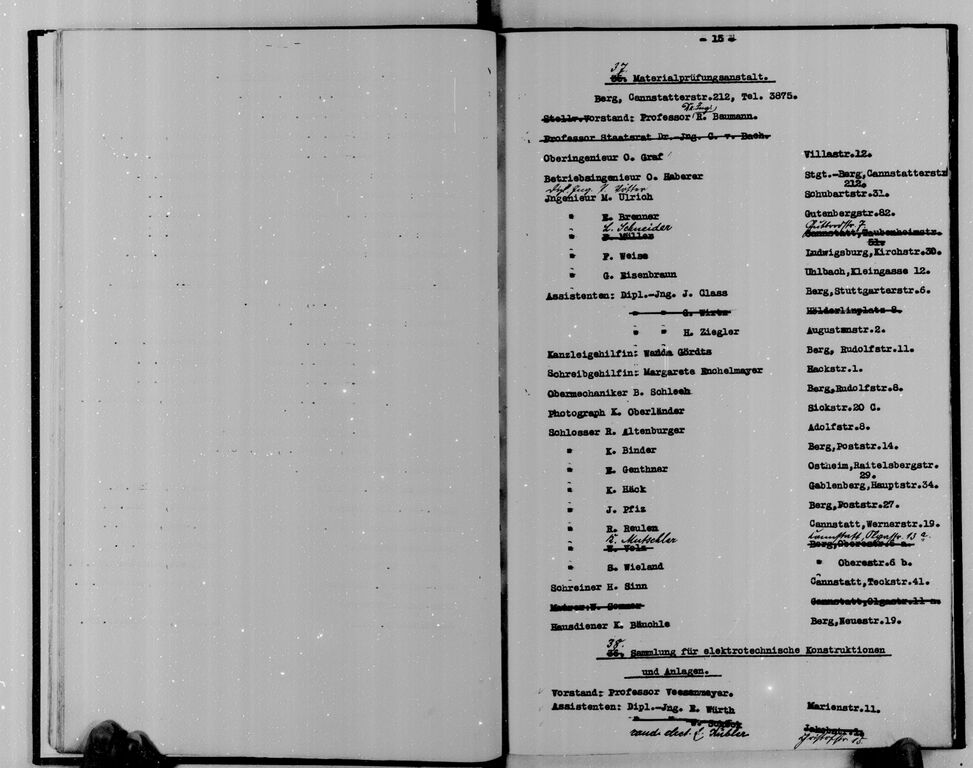 - 15 -
37.
36. Materialprüfungsanstalt.
Berg, Cannstatterstr.212, Tel. 3875.
Dr. Ing.
Stellv.Vorstand: Professor R. Baumann.
Professor Staatsrat Dr.-Jng. C. v. Bach.
Oberingenieur O. Graf Villastr.12.
Betriebsingenieur O. Haberer Stgt.-Berg, Cannstatterstr
212.
Dipl. Ing.
Jngenieur M. Ulrich Schubartstr.31.
" E. Brenner Gutenbergstr.82.
L. Schneider
" Müller Cannstatt,
51.
" F. Weiss Ludwigsburg, Kirchstr.30.
" G. Eisenbraun Uhlbach, Kleingasse 12.
Assistenten: Dipl.-Jng. J. Class Berg, Stuttgarterstr.6.
" " G. Wirtz Hölderlinplatz
" " H. Ziegler Augustenstr.2.
Kanzleigehilfin: Wanda Gördts Berg, Rudolfstr.11.
Schreibgehilfin: Margarete Enchelmayer Hackstr.1.
Obermechaniker B. Schlech Berg,Rudolfstr.8.
Photograph K. Oberländer Sickstr.20 C.
Schlosser R. Altenburger Adolfstr.8.
" K. Binder Berg,Poststr.14.
" E. Genthner Ostheim,Raitelsbergstr.
29.
" K. Häck Gablenberg,Hauptstr.34.
" J. Pfiz Berg,Poststr.27.
" R. Reulen Cannstatt, Wernerstr.19.
K. Mutschler Cannstatt, Olgastr. 13 a.
" Volz Berg,Oberestr.6 a.
" S. Wieland " Oberestr.6 b.
Schreiner H. Sinn Cannstatt, Teckstr.41.
W. Sommer Cannstatt,Olgastr.11
Hausdiener K. Bäuchle Berg, Neuestr.19.
38.
36. Sammlung für elektrotechnische Konstruktionen
und Anlagen.
Vorstand: Professor Veesenmeyer.
Assistenten: Dipl.-Jng. E. Würth Marienstr.11.
" " W. Schöck Jakobstr.
cand. elect. Kübler Christofstr. 15.